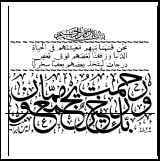 بسم الله الرحمن الرحيم
نحن قسمنا بينهم معيشتهم في الحياة
الدنيا ورفعنا بعضهم فوق بعض
درجات ليتخذ بعضهم بعضا سخريا
ورحمت ربك خير مما يجمعون